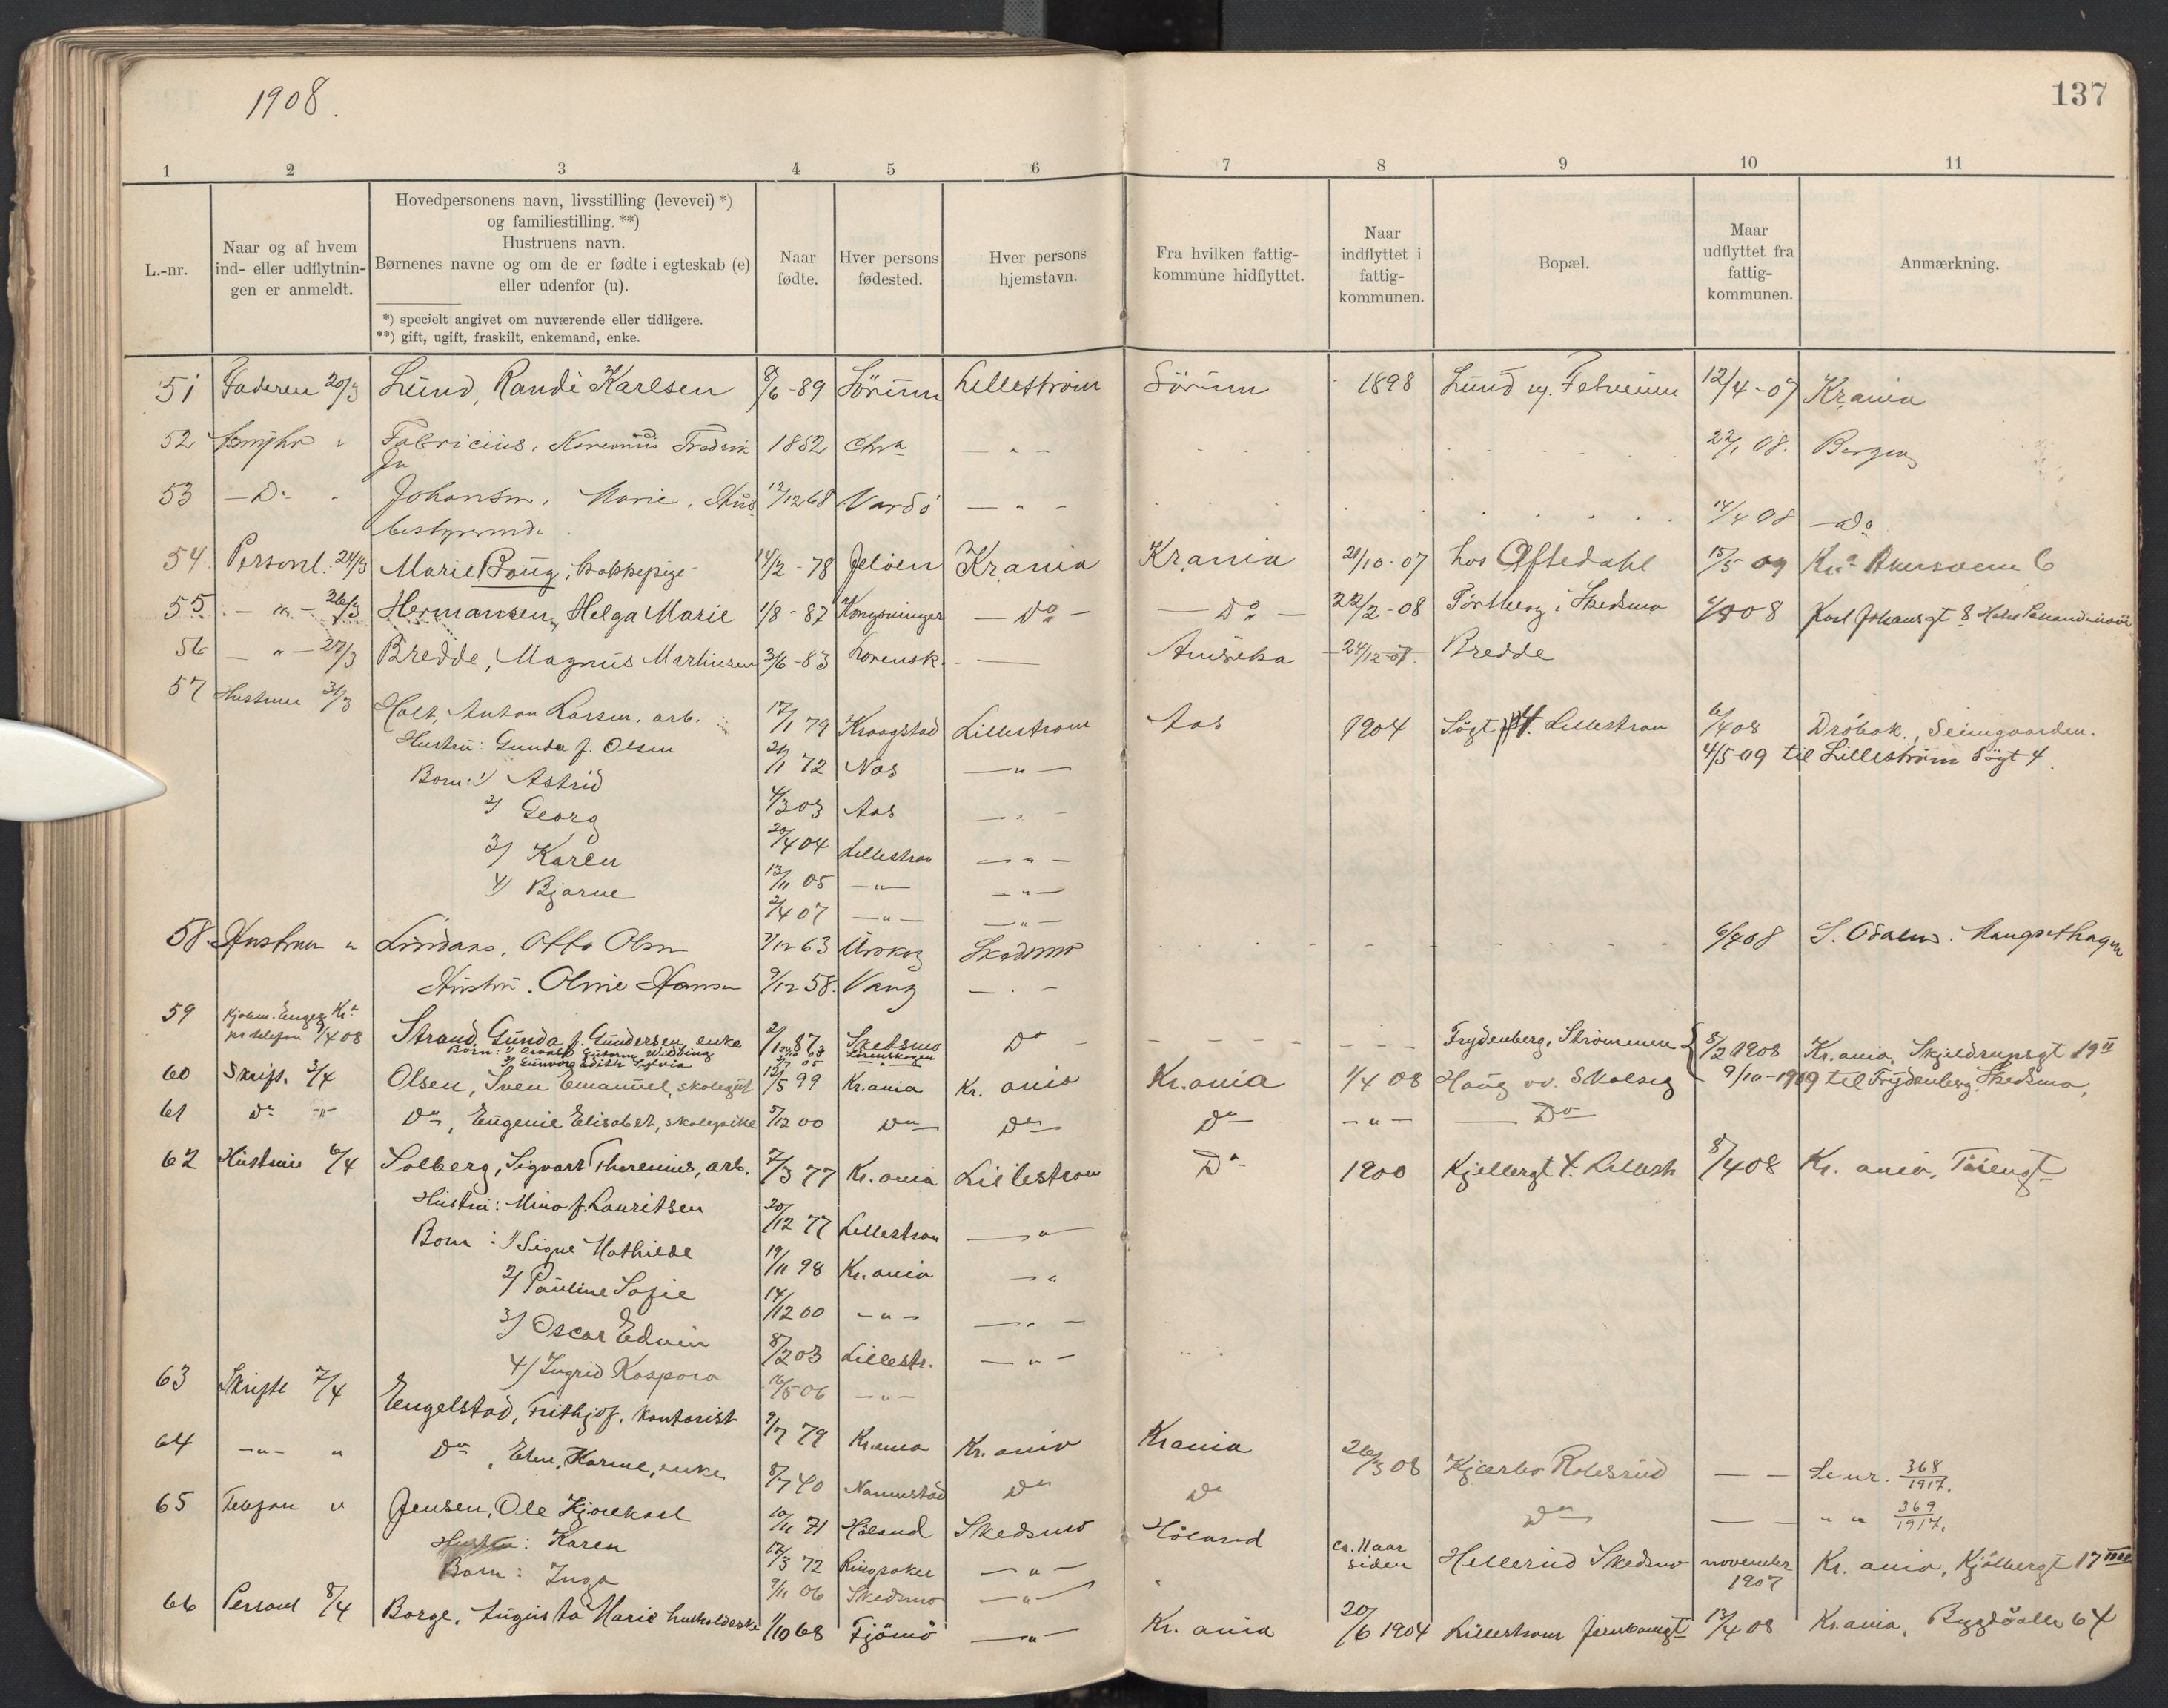 1908.
137
1 2 3 4 5 6 7 8 9 10 11
L.-nr.
Naar og af hvem ind- eller udflytnin-gen er anmeldt.
Hovedpersonens navn, livsstilling (levevei) *)
og familiestilling. **)
Hustruens navn.
Børnenes navne og om de er fødte i egteskab (e)
eller udenfor (u).
*) specielt angivet om nuværende eller tidligere.
**) gift, ugift, fraskilt, enkemand, enke.
Naar fødte.
Hver persons fødested.
Hver persons hjemstavn.
Fra hvilken fattig-kommune hidflyttet.
Naar indflyttet i fattig-kommunen.
Bopæl.
Maar udflyttet fra fattig-kommunen.
Anmærkning.
51 Faderen 20/3 Lund, Randi Karlsen 8/6-89 Sörum Lilleström Sörum 1898 Lund 12/4-07 Kr.ania
52 Fabricius, 1852 Chra — " — 22/1 08. Bergen
53 — Do Johansen, Marie, Hus 12/12 68 Vardö — " — 14/4 08 — Do
bestyrerinde
54 Personl. 24/3 Marie Boug, 14/2-78 Jelöen Kr.ania Kr.ania 21/10-07 hos Oftedahl 15/5 09 Kra 6
55 — " — 26/3 Hermansen, Helga Marie 1/8-87 Kongsvinger — Do — — Do — 22/2-08 i Skedsmo Karl Johansgt 8
56 — " — 27/3 Bredde, Magnus Martinsen 3/6-83 Lørensk. — 24/12-07. Bredde
57 Hustruen 31/3 Holt, Anton Larsen, arb. 17/1 79 Kraagstad Lilleström Aas 1904 Sögt 4. Lilleström 6/4 08 Dröbak, Seimgaarden.
Hustru: Gunda f. Olsen 21/1 72 Aas — " — 4/5-09 til Lilleström Sögt 4.
Börn: 1/ Astrid 4/3 03 Aas — " —
2/ Georg 20/4 04 Lilleström — " —
3/ Karen 13/11 05 — " — — " —
4/ Bjarne 2/4 07 — " — — " —
58. Hustruen " Otto Olsen 7/12 63 Urskog Skedsmo 6/4 08 S. Odalen.
Hustru. Oline Hansen 9/12 58. Vang — " —
59 pr telefon 9/4 08 Strand, Gunda f. Gundersen, enke 2/1 87 Skedsmo Do — Frydenberg, Strömmen 8/2 1908 Kr.ania, Skjeldrupsgt 19 II
Börn: 1/
2/ Gunvorg Edith Sylvia
9/10-1909 til Frydenberg Skedsmo.
60 Skrift. 3/4 Olsen, Sven Emanuel, skolegut 12/5 99 Kr.ania Kr.ania Kr.ania 1/4 08 Haug
61 Do — " Do, Eugenie Elisabet, skolepike 5/12 00 Do Do Do — " — — Do
62 Hustruen 6/4 Solberg, Sigvart Thorenius, arb. 7/3 77 Kr.ania Lilleström Do 1900 Kjellergt 4. Lillestr 8/4 08 Kr.ania, Töiengt
Hustru: Mina f. Lauritsen 20/12 77 Lilleström — "
Börn: 1/ Signe Mathilde 19/11 98 Kr.ania — "
2/ Pauline Sofie 14/12 00 — " — — " —
3/ Oscar Edvin 8/2 03 Lillestr. — " —
4/ Ingrid Kaspara 16/5 06 — " —
63 Skriftl 7/4 Engelstad, Frithjof, kontorist 9/7 79 Kr.ania Kr.ania Kr.ania 26/3 08 Kjærbo Robsrud — — Lenr. 368/1917.
64 — " — " Do, Karine, enke 8/7 40 Nannestad Do Do Do — — " " 369/1917.
65 Telefon " Jensen, Ole 10/11 71 Höland Skedsmo Höland ca. 11 aar siden Hellerud Skedsmo november 1907 Kr.ania, Kjölbergt 17 IIII
Hustru: Karen 12/3 72 Ringsaker — " —
Barn: Inga 9/11 06 Skedsmo — " —
66 Personl 8/4 Borge, Augusta Marie husholderske 1/10 68 Tjömö — " — Kr.ania 20/6 1904 Lilleström Jernbanegt 13/4 08 Kr.ania, Bygdöalle 64